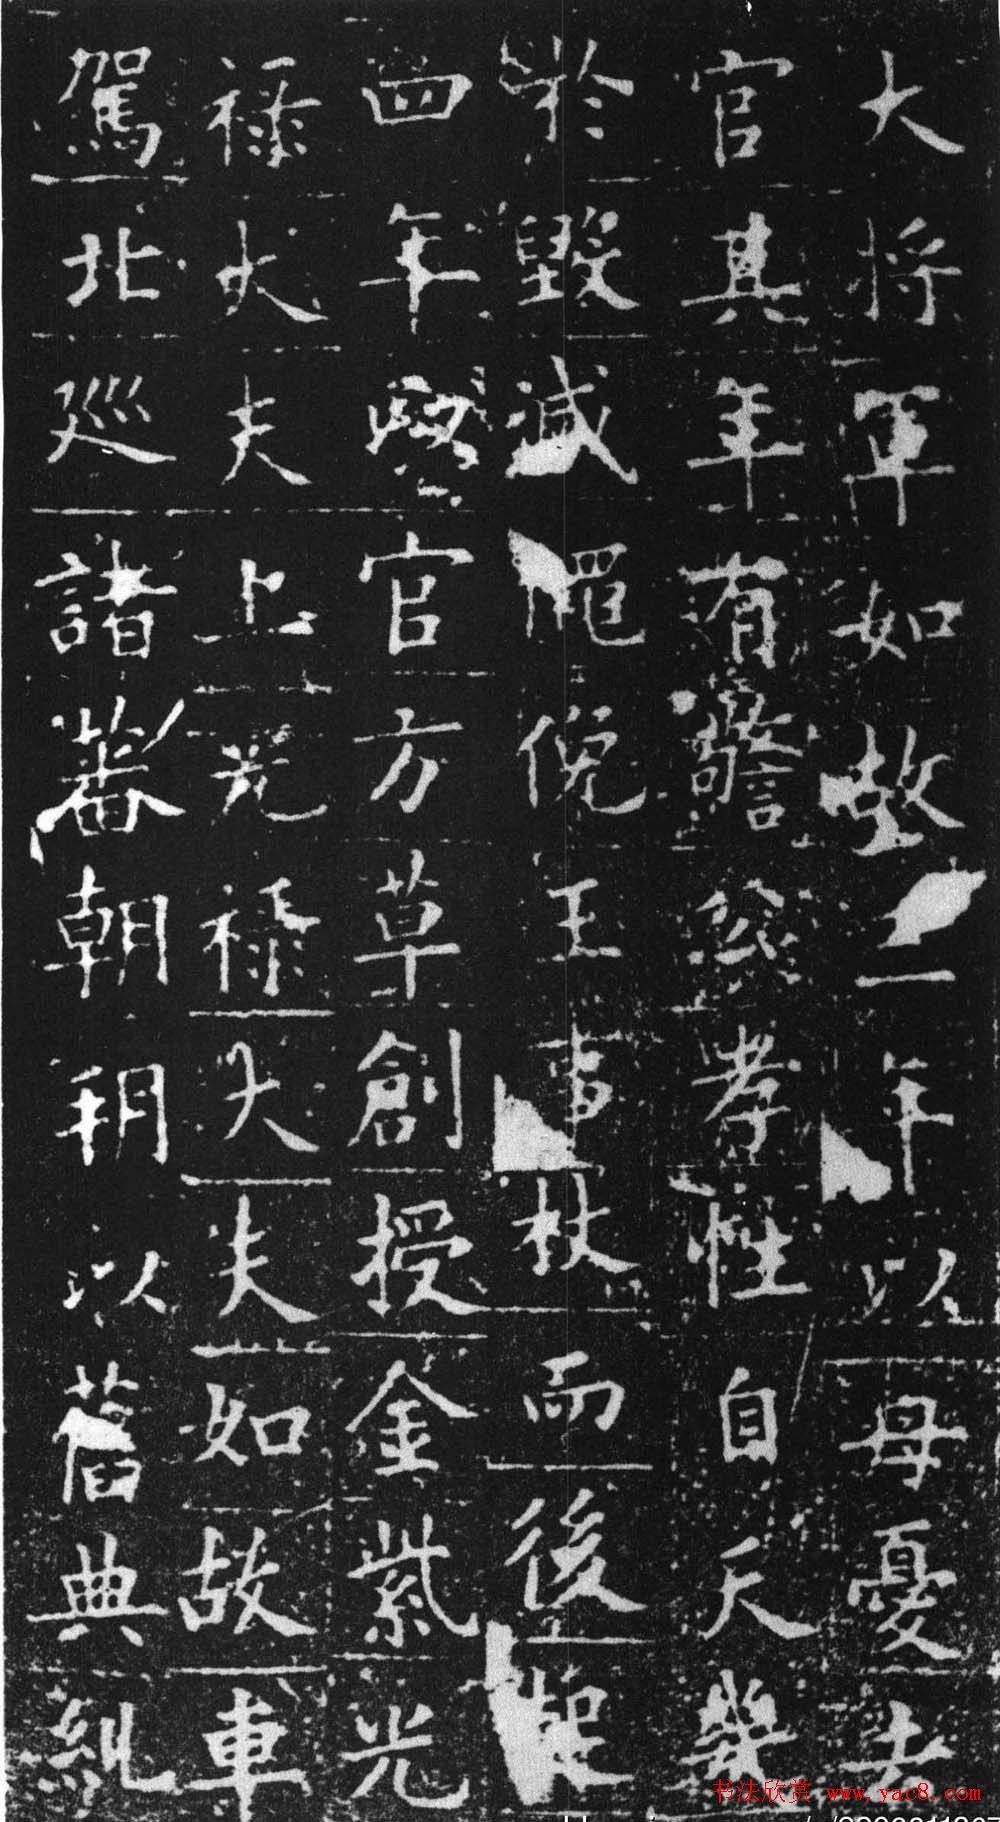 大將軍如故二年以母憂去
官其年有警公孝性自天幾
於毀滅僶俛王事杖而後起
四年官方草創授金紫光
祿大夫上光祿大夫如故車
駕北巡諸蕃朝以舊典糾
书法欣赏 www.yac8.com